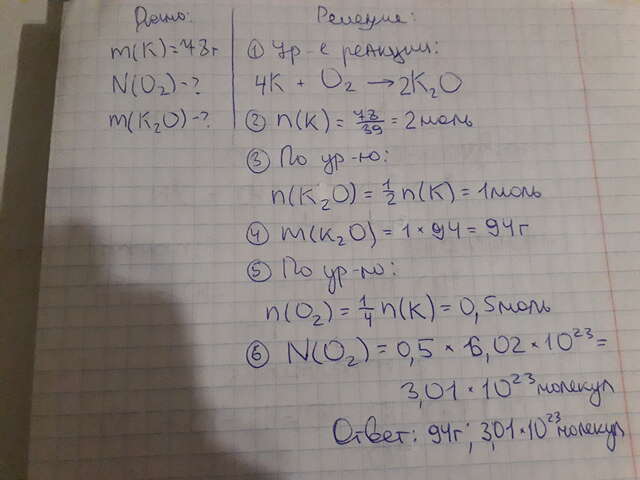 Дано:
m(K)=78г
N(O₂)-?
m(K₂O)-?
Решение:
① Ур-е реакции:
4K + O₂ → 2K₂O
② n(K) = 78/39 = 2моль
③ По ур-ю:
n(K₂O) = 1/2 n(K) = 1моль
④ m(K₂O) = 1 * 94 = 94г
⑤ По ур-ю:
n(O₂) = 1/4 n(K) = 0,5моль
⑥ N(O₂) = 0,5 * 6,02 * 10²³ =
3,01 * 10²³ молекул
Ответ: 94г; 3,01*10²³ молекул